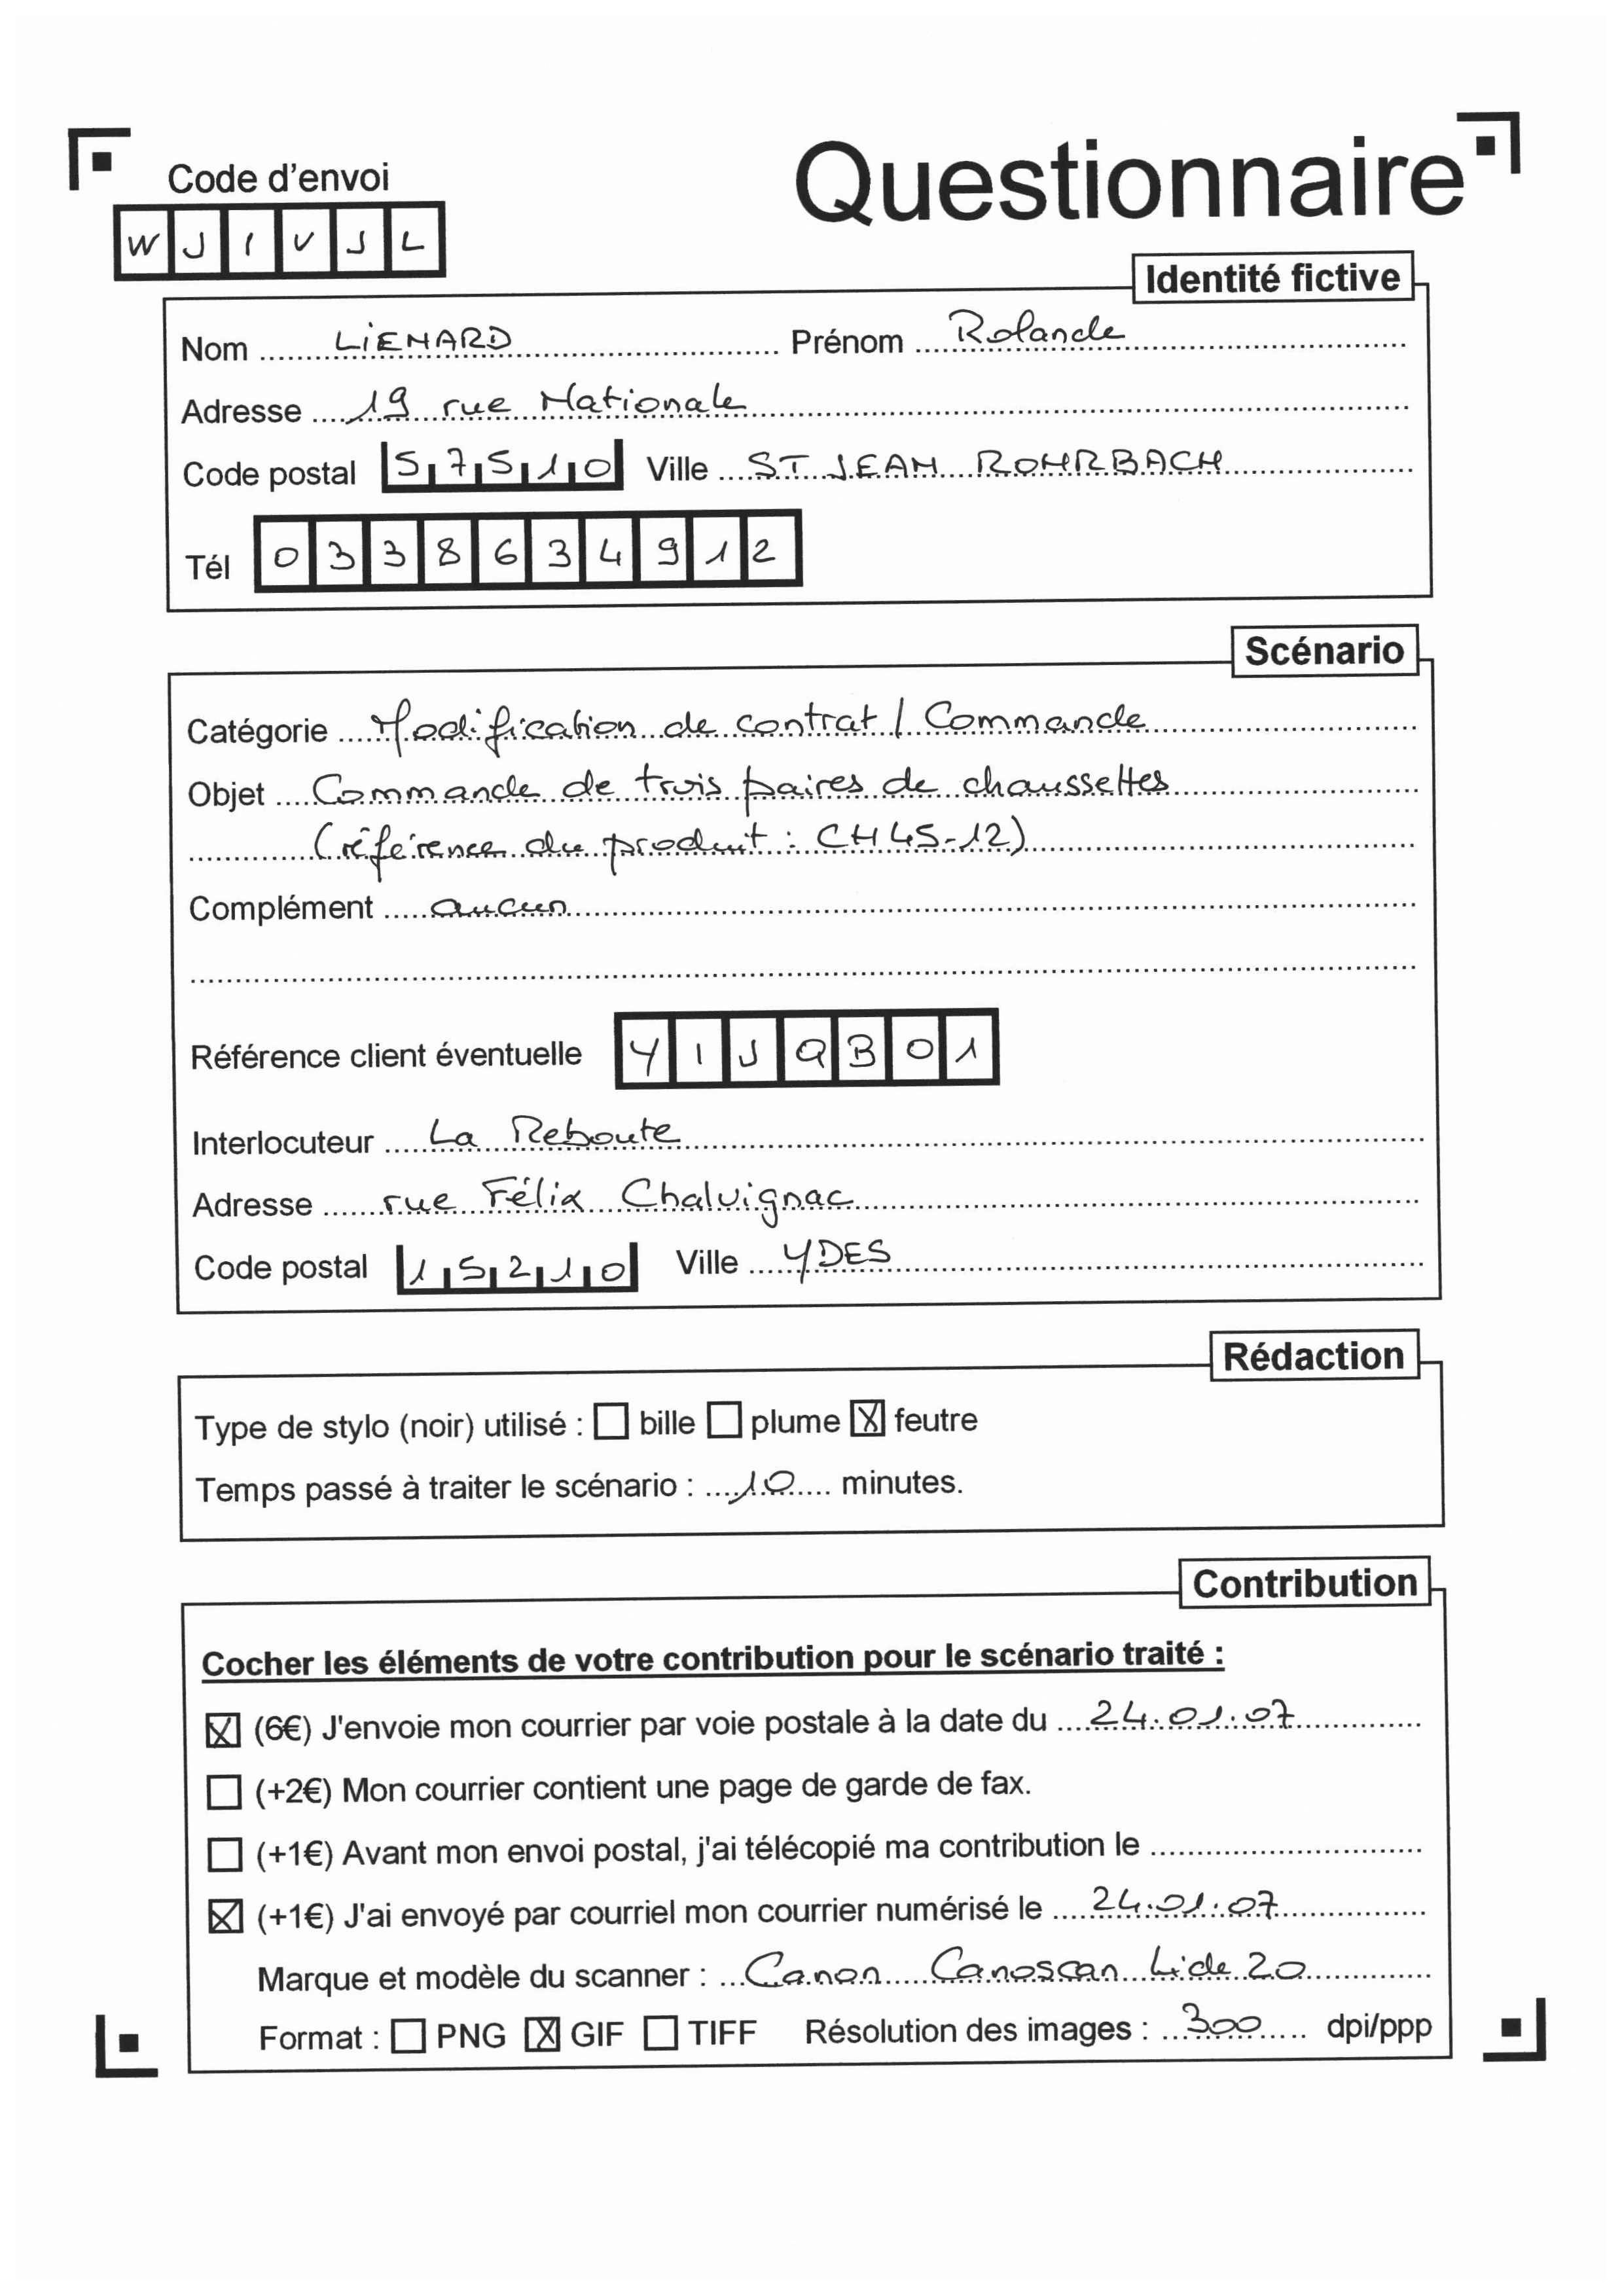 Code d'envoi
Questionnaire
W J I V J L
Identité fictive
Nom LIENARD Prénom Rolande
Adresse 19 rue Nationale
Code postal 57510 Ville ST JEAN ROHRBACH
Tél 0338634912
Scénario
Catégorie Modification de contrat / Commande
Objet Commande de trois paires de chaussettes
(référence du produit : CH45-12)
Complément aucun
Référence client éventuelle YIJQB01
Interlocuteur La Reboute
Adresse rue Félix Chalvignac
Code postal 15210 Ville YDES
Rédaction
Type de stylo (noir) utilisé : ☐ bille ☐ plume ☒ feutre
Temps passé à traiter le scénario : 10 minutes.
Contribution
Cocher les éléments de votre contribution pour le scénario traité :
☒ (6€) J'envoie mon courrier par voie postale à la date du 24.01.07
☐ (+2€) Mon courrier contient une page de garde de fax.
☐ (+1€) Avant mon envoi postal, j'ai télécopié ma contribution le
☒ (+1€) J'ai envoyé par courriel mon courrier numérisé le 24.01.07
Marque et modèle du scanner : Canon Canoscan Lide 20
Format : ☐ PNG ☒ GIF ☐ TIFF Résolution des images : 300 dpi/ppp